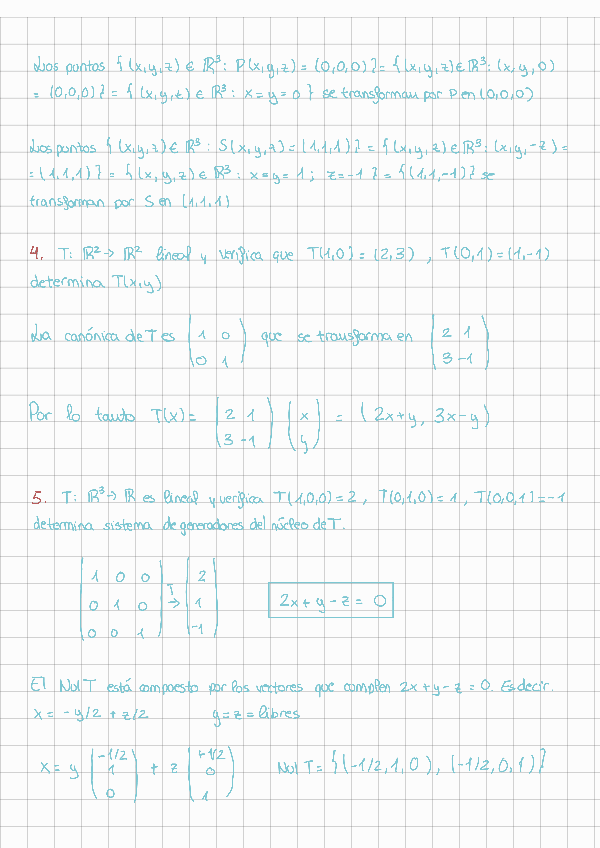 Los puntos { (x,y,z) ∈ ℝ³: P(x,y,z) = (0,0,0) } = { (x,y,z) ∈ ℝ³: (x,y,0)
= (0,0,0) } = { (x,y,z) ∈ ℝ³: x=y=0 } se transforman por P en (0,0,0)
Los puntos { (x,y,z) ∈ ℝ³: S(x,y,z) = (1,1,1) } = { (x,y,z) ∈ ℝ³: (x,y,-z) =
= (1,1,1) } = { (x,y,z) ∈ ℝ³: x=y=1; z=-1 } = {(1,1,-1)} se
transforman por S en (1,1,1)
4. T: ℝ² → ℝ² lineal y verifica que T(1,0) = (2,3), T(0,1) = (1,-1)
determina T(x,y)
La canónica de T es (1 0
0 1) que se transforma en (2 1
3 -1)
Por lo tanto T(x) = (2 1
3 -1) (x
y) = (2x+y, 3x-y)
5. T: ℝ³ → ℝ es lineal y verifica T(1,0,0) = 2, T(0,1,0) = 1, T(0,0,1) = -1
determina sistema de generadores del núcleo de T.
(1 0 0
0 1 0
0 0 1) T→ (2
1
-1) 2x+y-z = 0
El Nul T está compuesto por los vectores que complen 2x+y-z=0. Es decir.
x = -y/2 + z/2 y=z=libres
x = y (-1/2
1
0) + z (+1/2
0
1) Nul T = {(-1/2,1,0), (-1/2,0,1)}